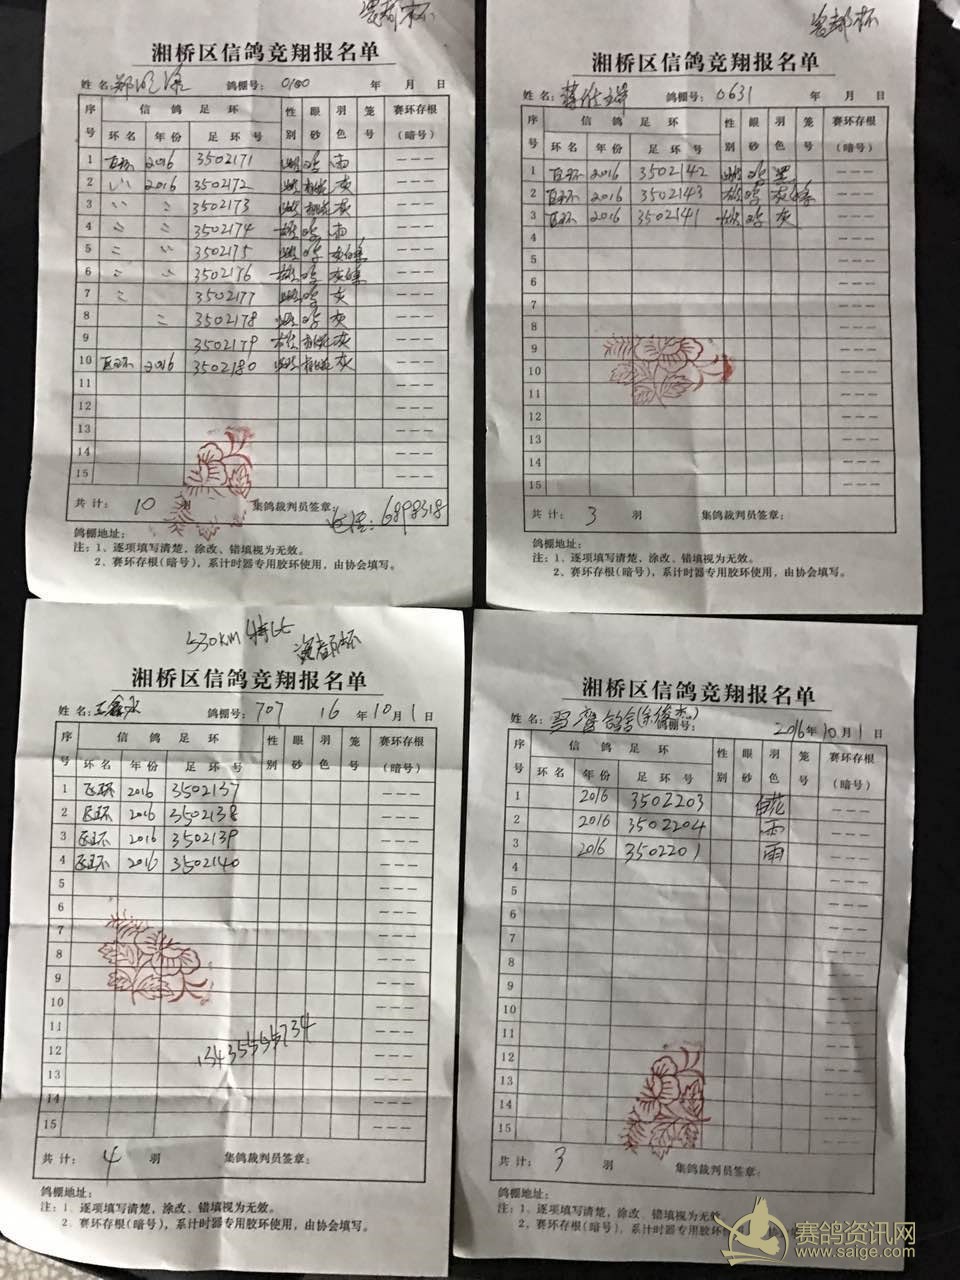 湘桥区信鸽竞翔报名单
姓名: 鸽棚号: 0180 年 月 日
序号 信鸽足环 性别 眼砂 羽色 笼号 赛环存根(暗号)
环名 年份 足环号
1 区环 2016 3502171 雌 雨 ---
2 〃 2016 3502172 雌 灰 ---
3 〃 〃 3502173 雌 灰 ---
4 〃 〃 3502174 雄 雨 ---
5 〃 〃 3502175 雌 ---
6 〃 〃 3502176 雄 ---
7 〃 3502177 雌 灰 ---
8 〃 3502178 雌 灰 ---
9 3502179 雄 灰 ---
10 区环 2016 3502180 雌 灰 ---
11 ---
12 ---
13 ---
14 ---
15 ---
共计: 10 羽 集鸽裁判员签章:
6898318
鸽棚地址:
注:1、逐项填写清楚,涂改、错填视为无效。
2、赛环存根(暗号),系计时器专用胶环使用,由协会填写。
湘桥区信鸽竞翔报名单
姓名: 鸽棚号: 0631 年 月 日
序号 信鸽足环 性别 眼砂 羽色 笼号 赛环存根(暗号)
环名 年份 足环号
1 区环 2016 3502142 雌 黑 ---
2 区环 2016 3502143 雄 ---
3 区环 2016 3502141 雌 灰 ---
4 ---
5 ---
6 ---
7 ---
8 ---
9 ---
10 ---
11 ---
12 ---
13 ---
14 ---
15 ---
共计: 3 羽 集鸽裁判员签章:
鸽棚地址:
注:1、逐项填写清楚,涂改、错填视为无效。
2、赛环存根(暗号),系计时器专用胶环使用,由协会填写。
530KM 特比
湘桥区信鸽竞翔报名单
姓名: 王 鸽棚号: 707 16 年 10 月 1 日
序号 信鸽足环 性别 眼砂 羽色 笼号 赛环存根(暗号)
环名 年份 足环号
1 区环 2016 3502137 ---
2 区环 2016 3502138 ---
3 区环 2016 3502139 ---
4 区环 2016 3502140 ---
5 ---
6 ---
7 ---
8 ---
9 ---
10 ---
11 ---
12 ---
13 ---
14 ---
15 ---
共计: 4 羽 集鸽裁判员签章:
鸽棚地址:
注:1、逐项填写清楚,涂改、错填视为无效。
2、赛环存根(暗号),系计时器专用胶环使用,由协会填写。
湘桥区信鸽竞翔报名单
姓名: 鸽舍 鸽棚号: 2016 年 10 月 1 日
序号 信鸽足环 性别 眼砂 羽色 笼号 赛环存根(暗号)
环名 年份 足环号
1 2016 3502203 花 ---
2 2016 3502204 雨 ---
3 2016 3502201 雨 ---
4 ---
5 ---
6 ---
7 ---
8 ---
9 ---
10 ---
11 ---
12 ---
13 ---
14 ---
15 ---
共计: 3 羽 集鸽裁判员签章:
鸽棚地址:
注:1、逐项填写清楚,涂改、错填视为无效。
2、赛环存根(暗号),系计时器专用胶环
赛鸽资讯网
www.saige.com